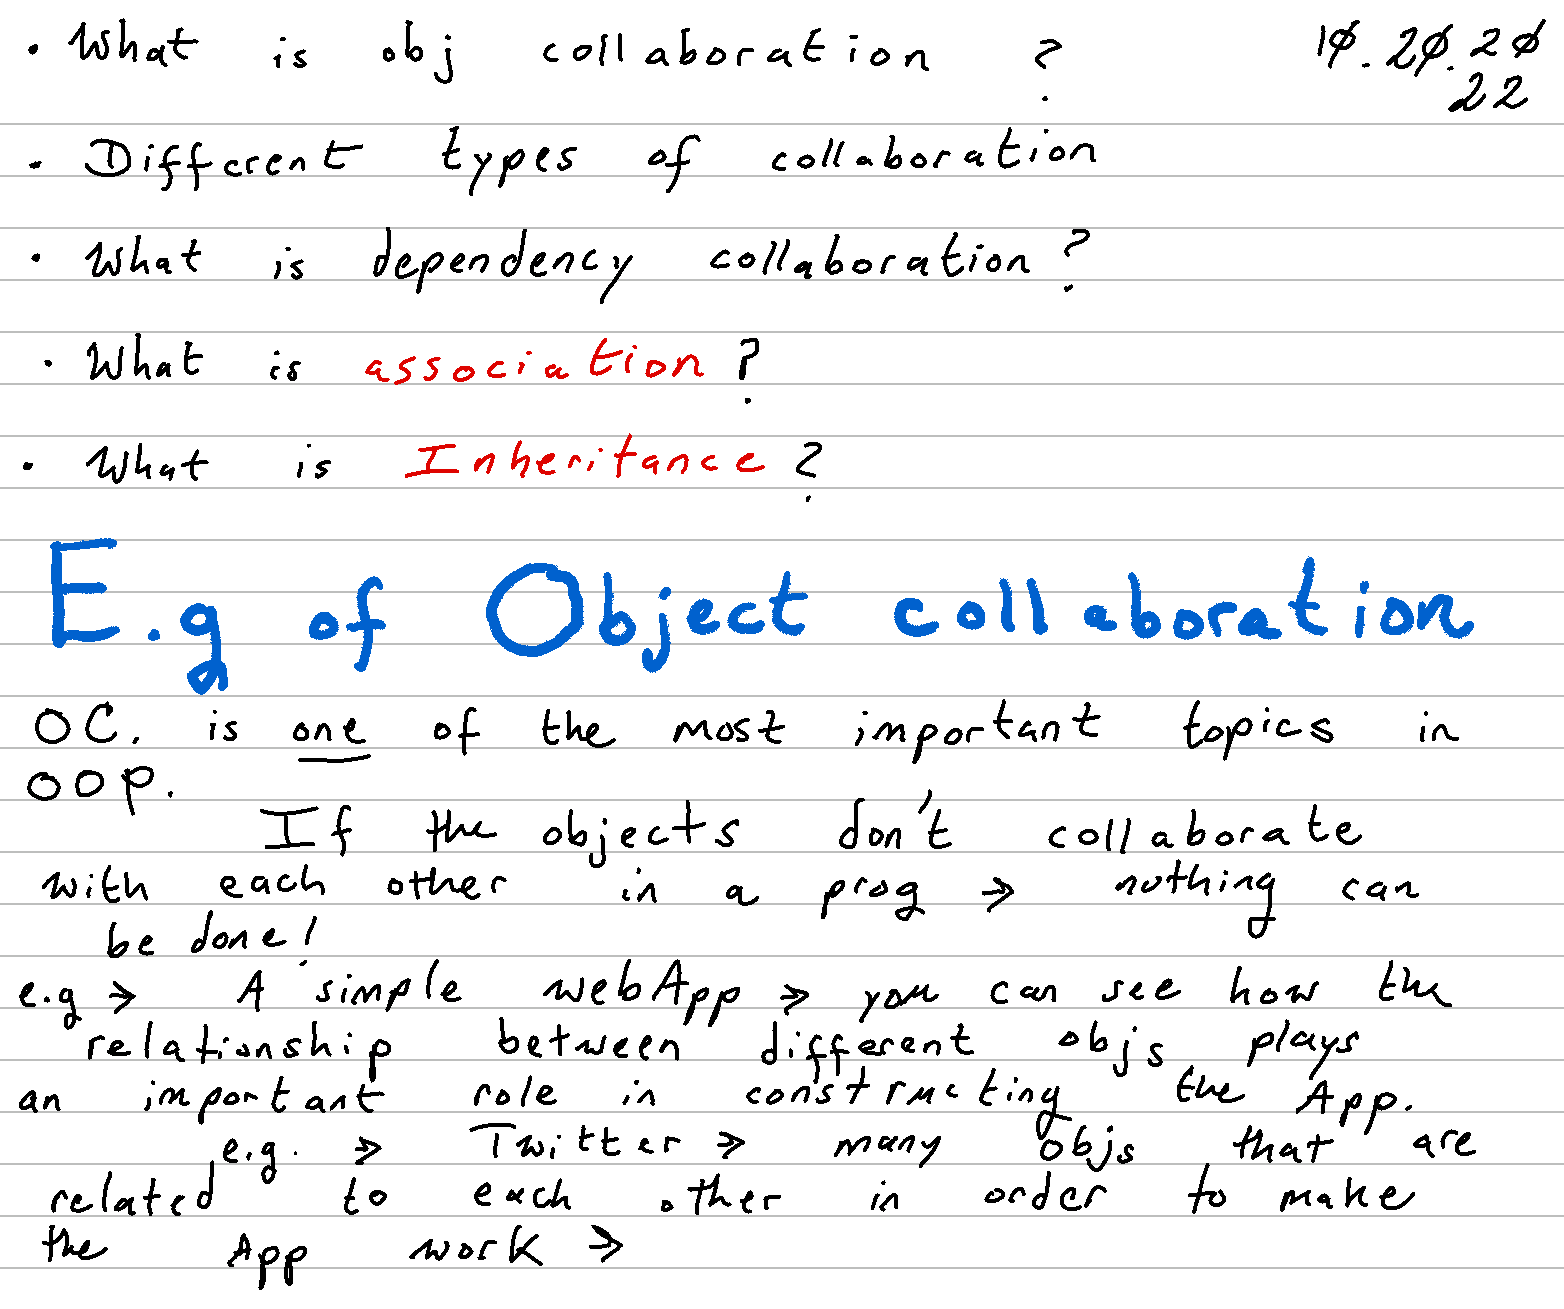 • What is obj collaboration ? 10.20.20
22
• Different types of collaboration
• What is dependency collaboration?
• What is association?
• What is Inheritance?
E.g of Object collaboration
OC. is one of the most important topics in
OOP.
If the objects don't collaborate
with each other in a prog → nothing can
be done!
e.g → A simple webApp → you can see how the
relationship between different objs plays
an important role in constructing the App.
e.g. → Twitter → many objs that are
related to each other in order to make
the App work →